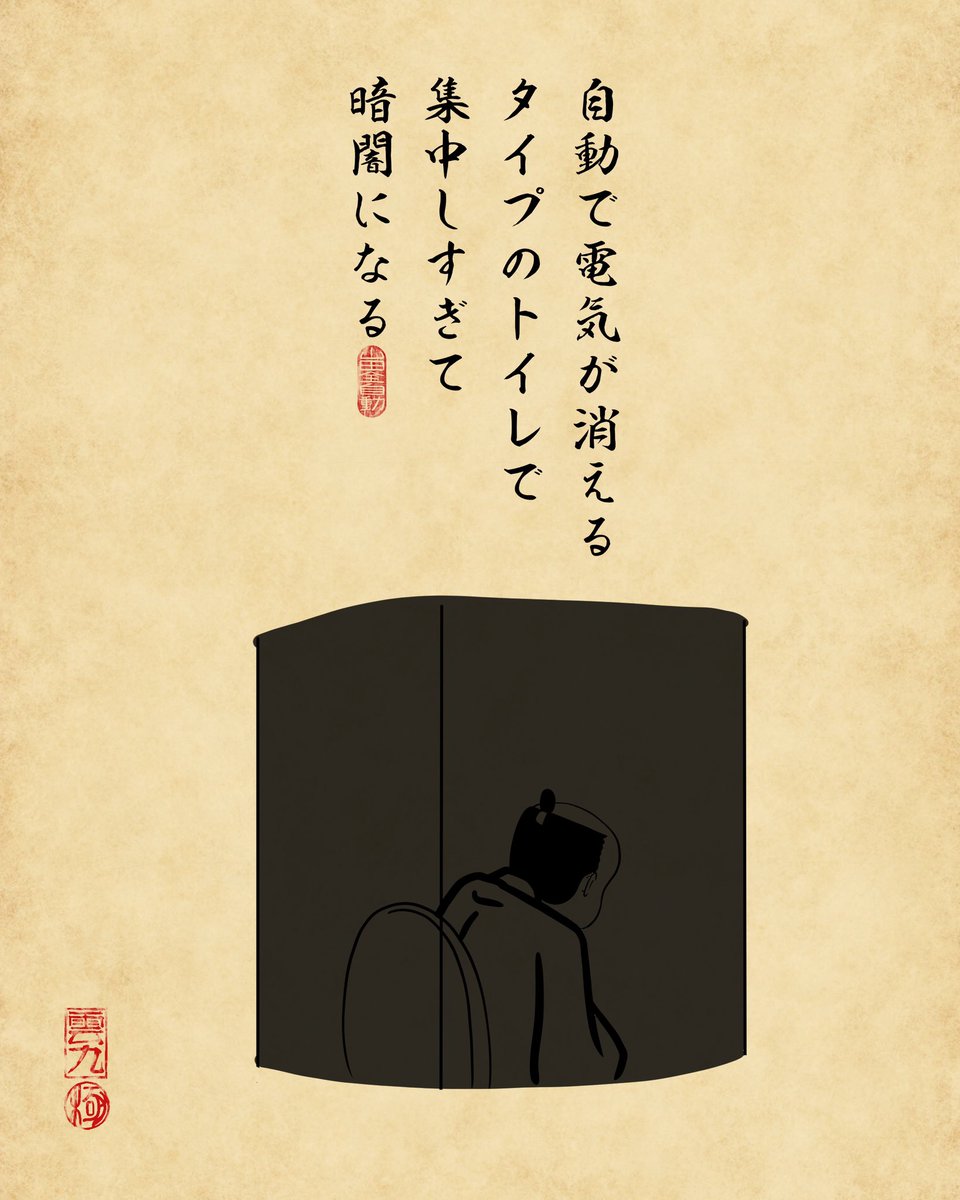 自動で電気が消える
タイプのトイレで
集中しすぎて
暗闇になる
雲九
極